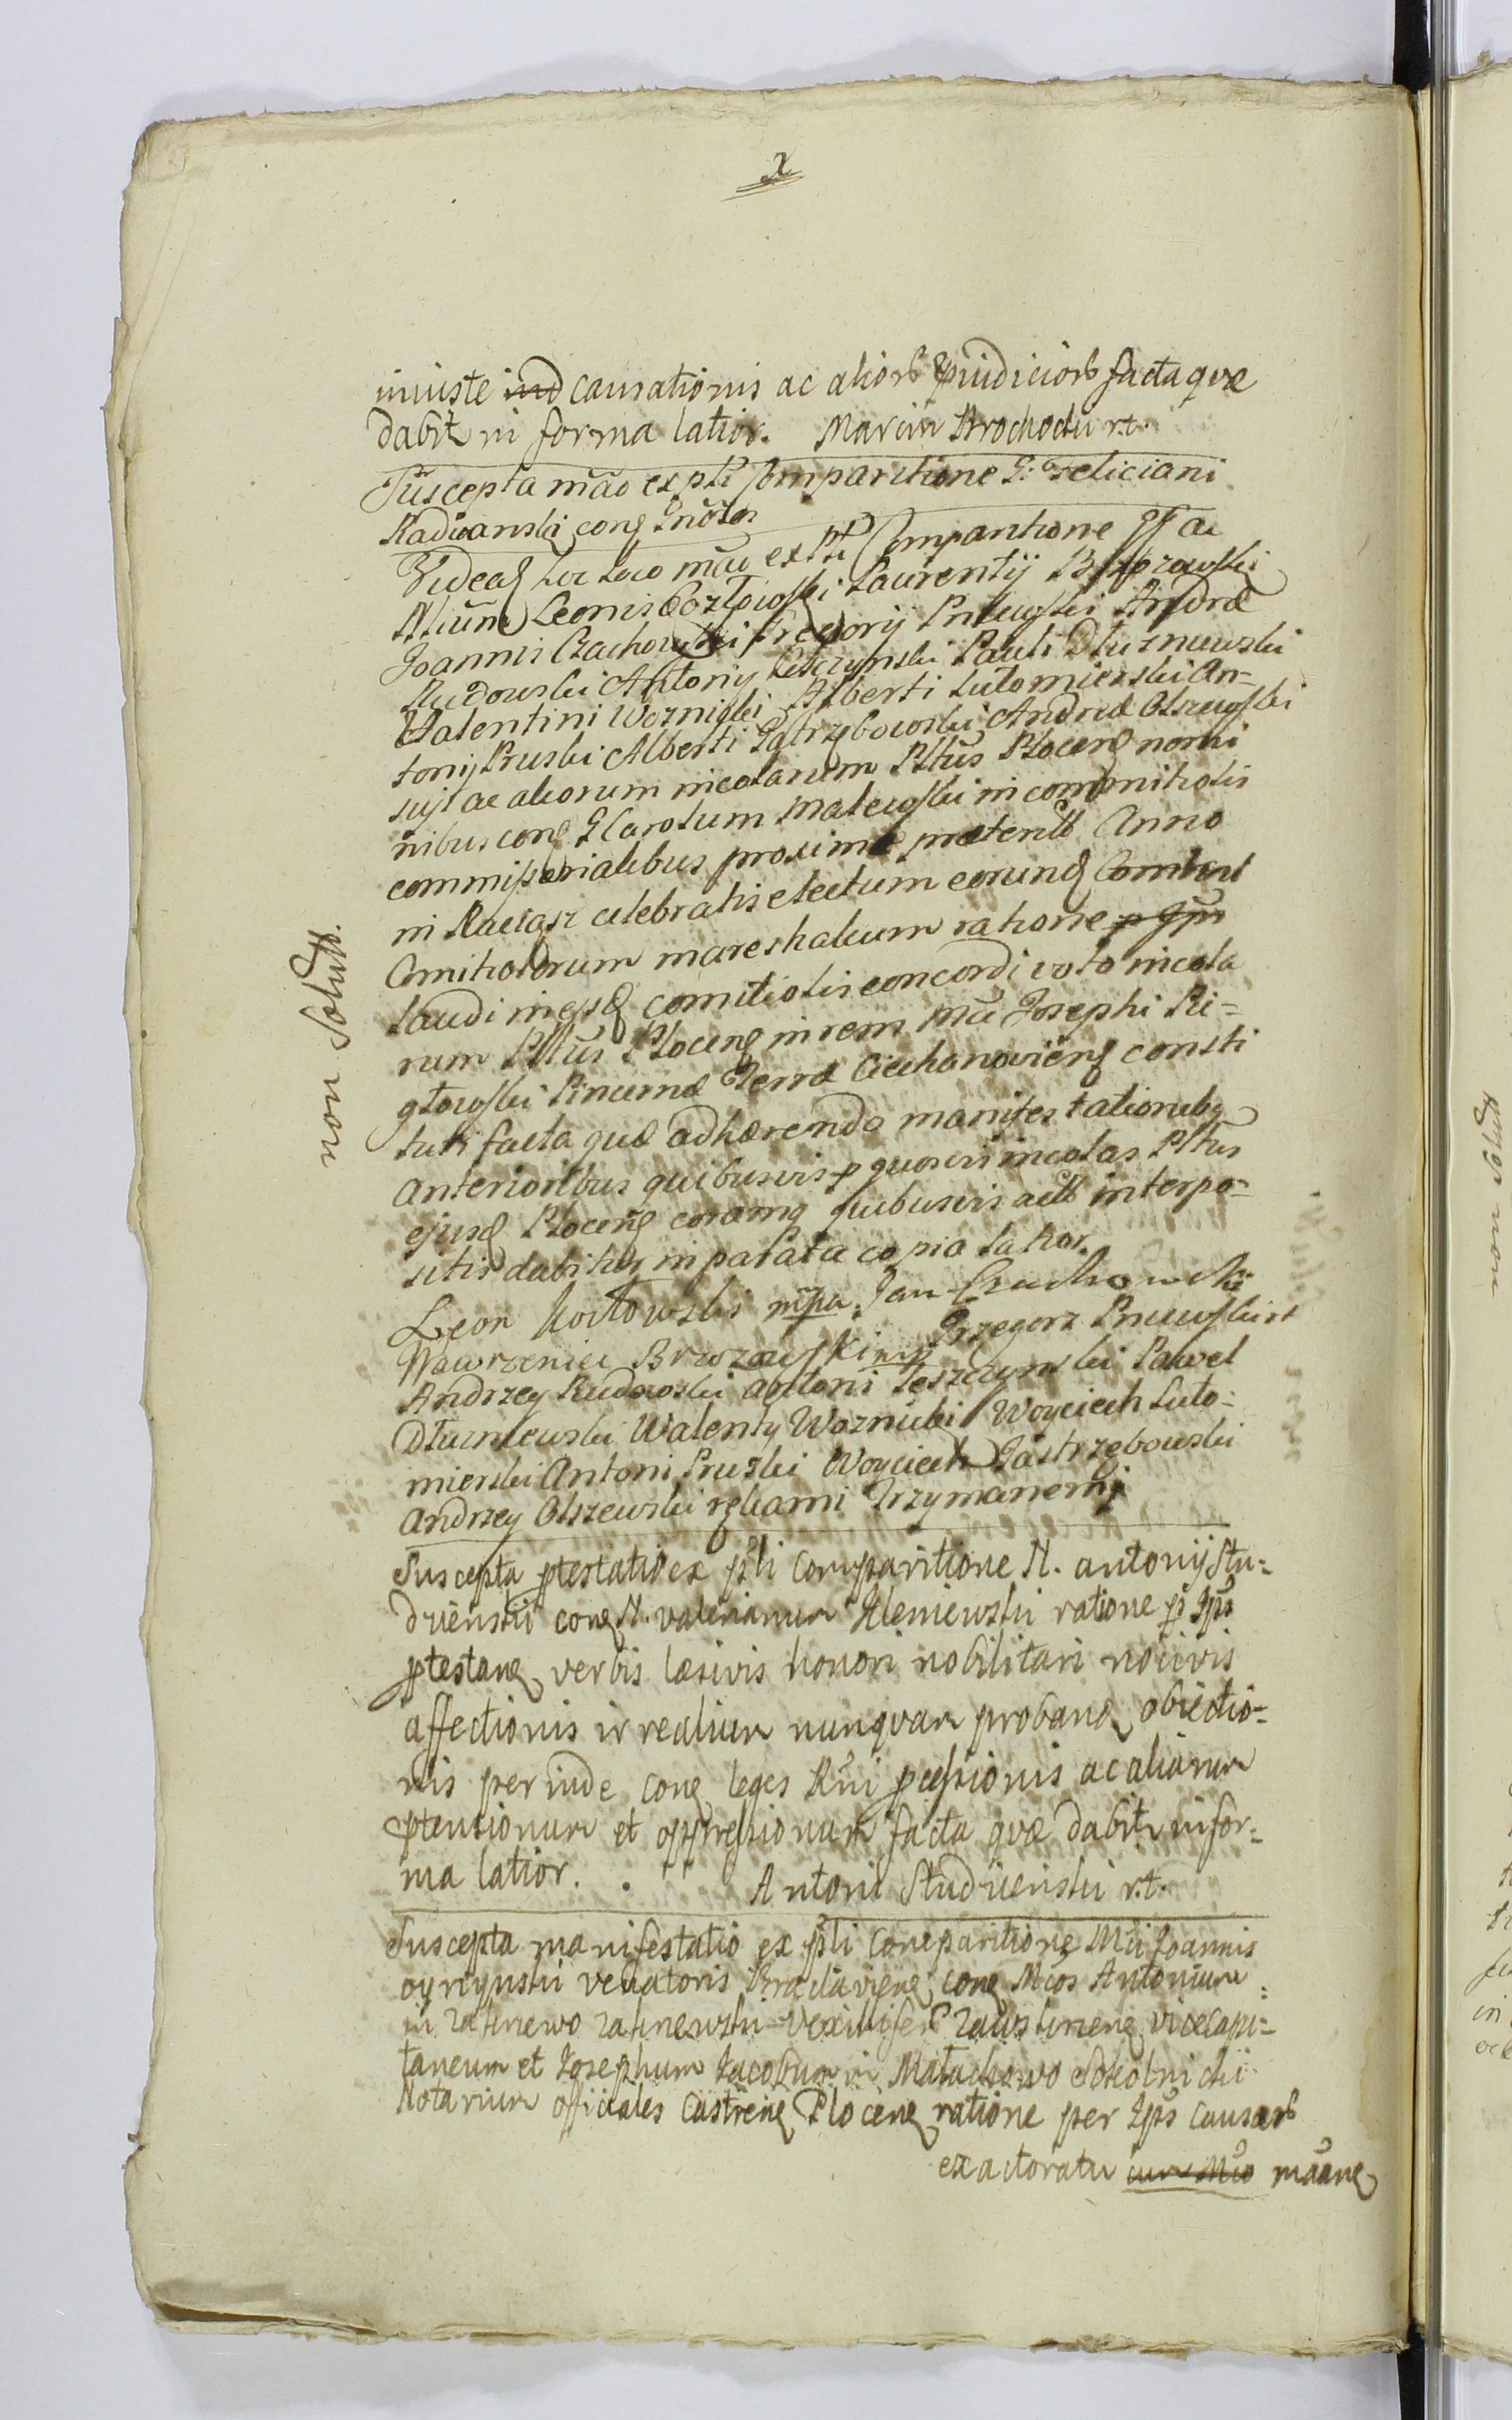 x
iniuste ind causationis ac alior. p̃iudicior. facta quæ
dabit͛ in forma latior. Marcin Krochocki r.t.
Suscepta mão ex pti Comparitione G. Feliciani
Radwanski cong
Videas hoc loco mão ex Pti Comparitione GG ac
Nlium Leonis Kozłowski Laurentij Brzozowski
Joannis Czachowski Gregorij Pniewski Andræ
Rudowski Antonij Leszczynski Pauli Dłuzniewski
Valentini Woznicki Alberti Lutomierski An-
tonij Pruski Alberti Jastrzębowski Andreæ Olszewski
suj ac aliorum incolarum Pltus Plocens nomi
nibus cong G Carolum Malewski in comitiolis
commissorialibus proxime præterito Anno
in Raciąsz celebratis electum eorund
Comitiolorum mareschalcum ratione
Laudi in ejsd comitiolis concordi voto incola
rum Pltus Plocens in rem Mci Josephi Li-
głowski Pincernæ Terræ Ciechanoviens consti
tuti facta quæ adhærendo manifestationibus
anterioribus quibusvis p quosvis incolas Pltus
ejusd Plocens coramq quibusvis actis interpo-
sitis dabitur in parata copia latior.
Leon Kozłowski mpa Jan Czachowski
Wawrzeniec Brzozowski mp Grzegorz Pniewski rt
Andrzey Rudowski Antoni Leszczynski Paweł
Dłuzniewski Walenty Woznicki Woyciech Luto-
mierski Antoni Pruski Woyciech Jastrzębowski
Andrzey Olszewski rękami trzymanemi
Suscepta ptestatio ex pti Comparitione N. Antonij Stu-
dzienski cong N. Valerianum Kleniewski ratione p Ips
ptestane verbis læsivis honori nobilitari nocivis
affectionis irrealium nunquam proband obiectio-
nis perinde cong leges Rni pcessionis ac aliarum
ptensionum et oppressionum facta quæ dabit͛ in for-
ma latior. Antoni Studzienski r.t.
Suscepta manifestatio ex pti Comparitione Mci Joannis
Oyrzynski Venatoris Braclaviens cong Mcos Antonium
in Zalinewo Zalinewski Vexilliferi Zawskrzens vicecapi-
taneum et Josephum Jacobum in Małachowo Sokolnicki
Notarium officiales Castrens Plocens ratione per Ips Causar.
exactoratu cum Mco mãane
non Solutt.